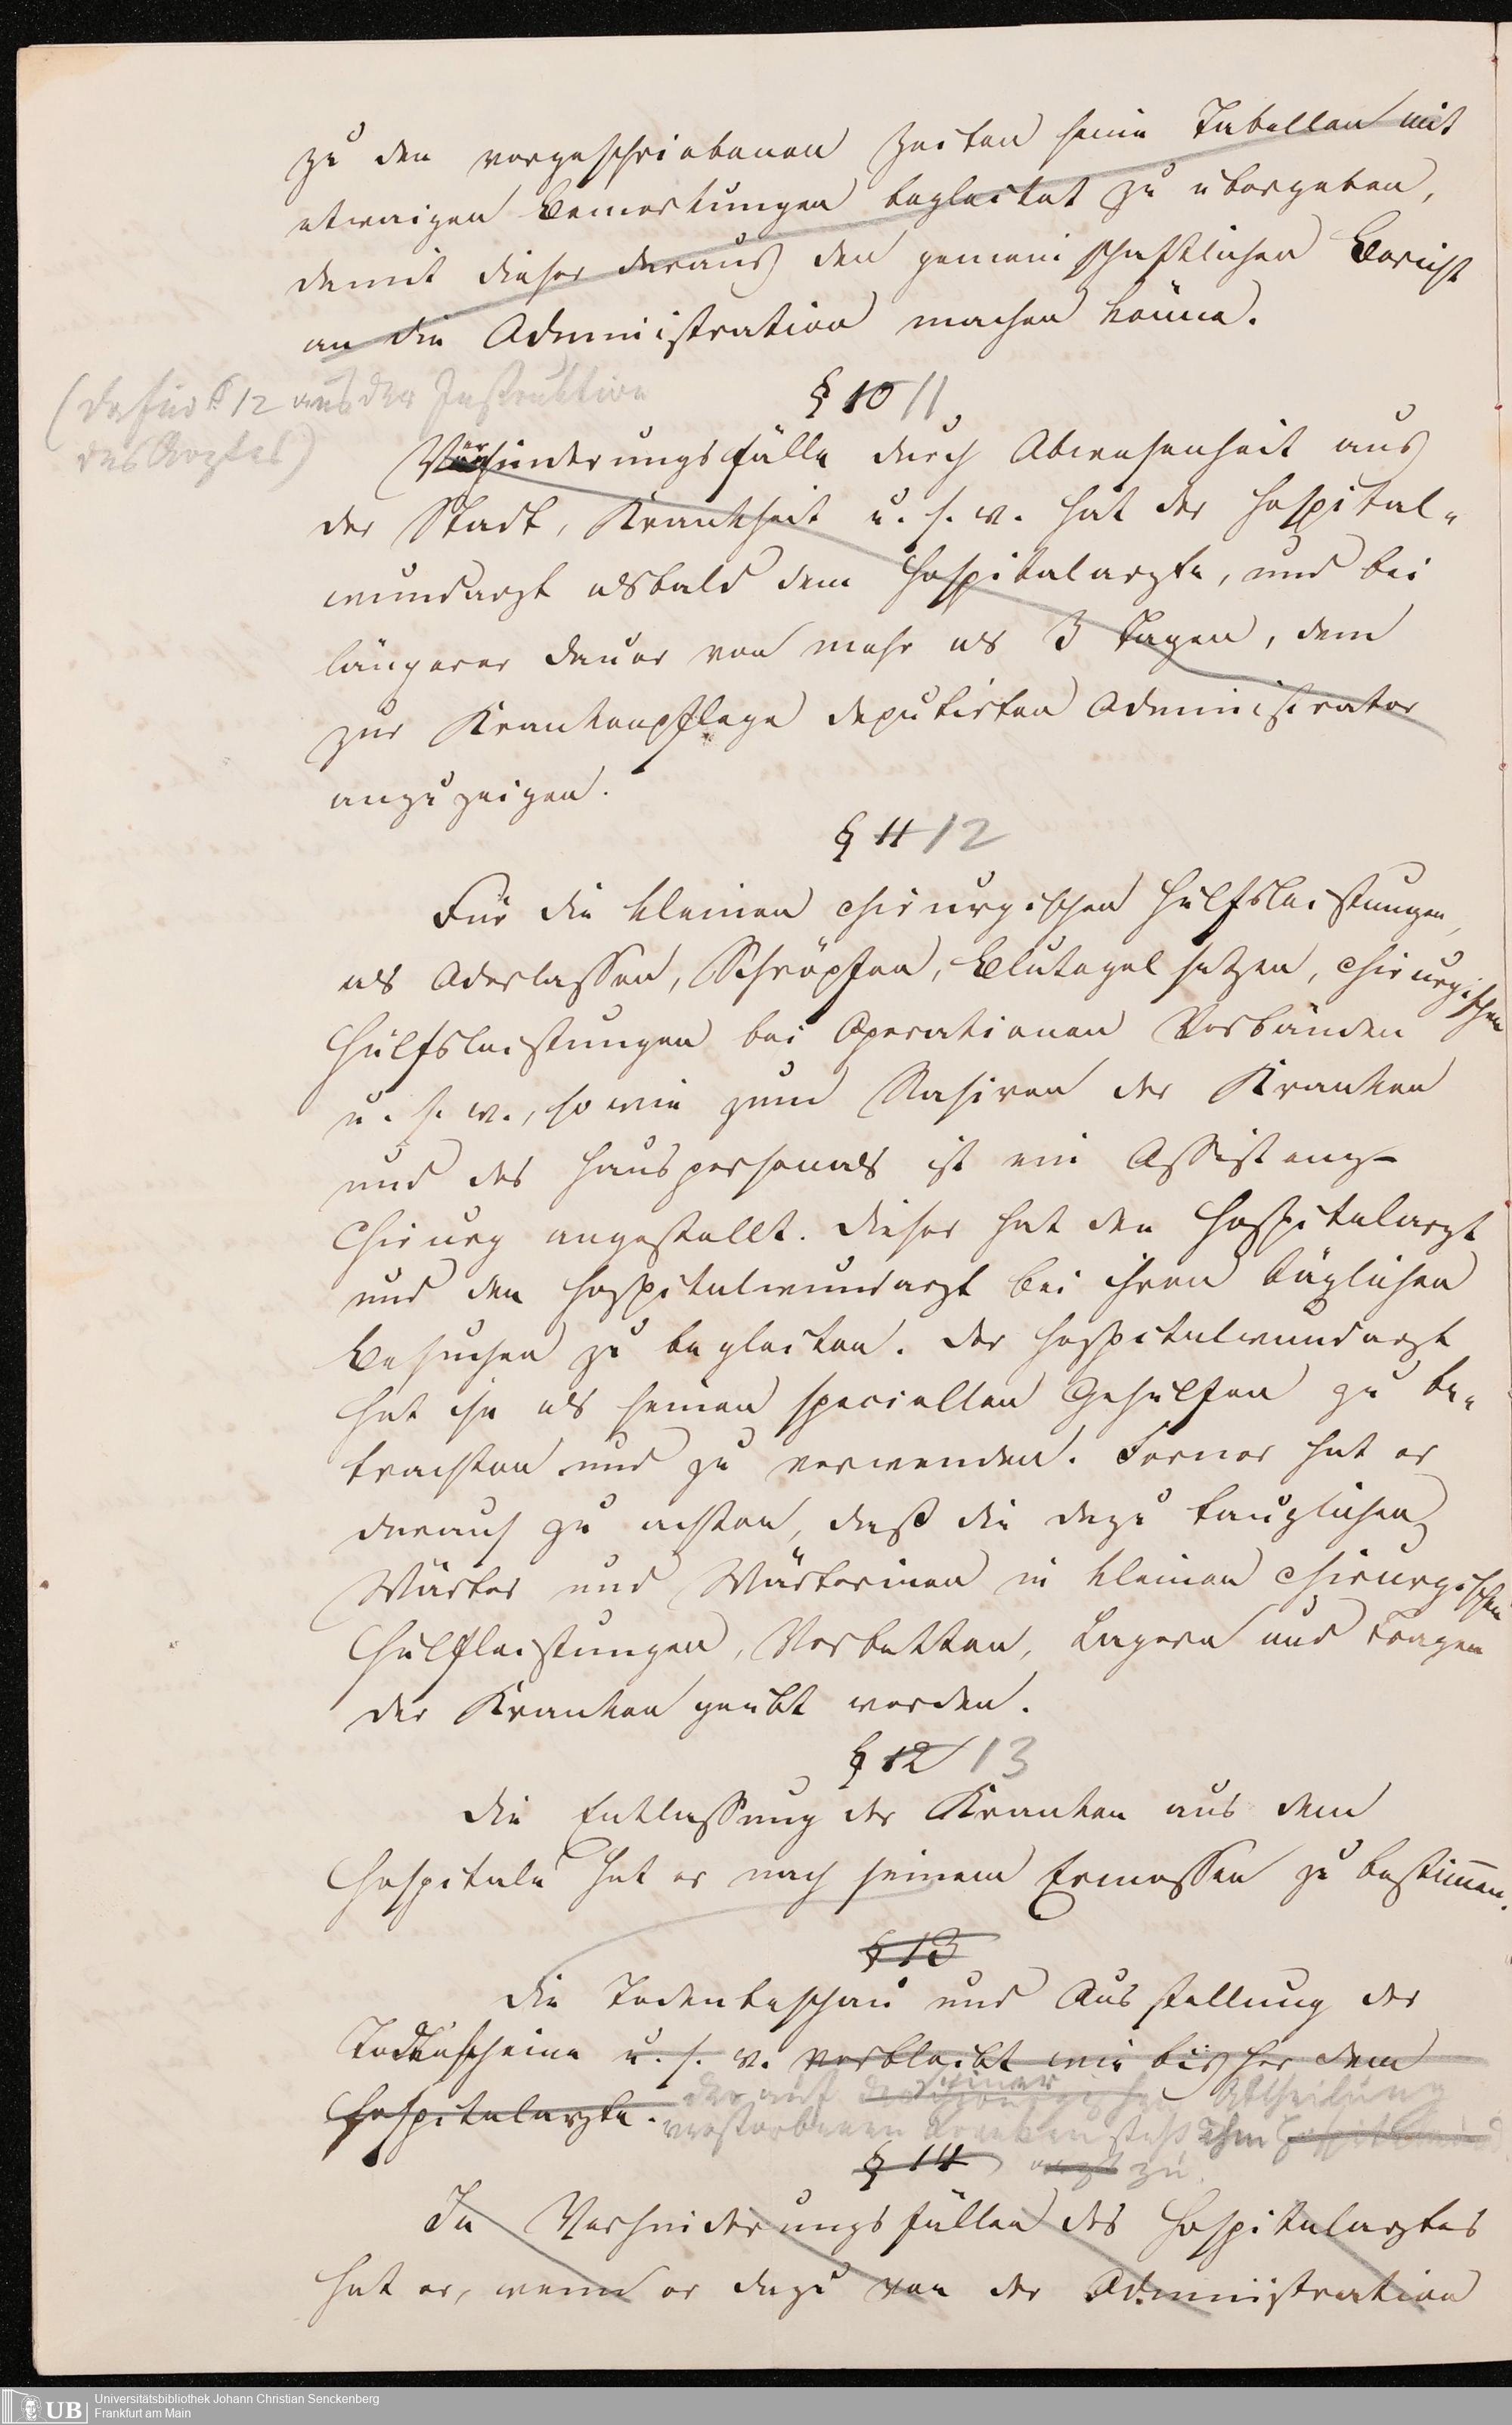 zu den vorgeschriebenen Zeiten seine Tabellen mit
etwaigen Bemerkungen begleitet zu übergeben,
damit dieser daraus den gemeinschaftlichen Bericht
an die Administration machen könne.
§ 10 11.
(Dafür § 12 aus der Instruktion
des Arztes)
Verhinderungsfälle durch Abwesenheit aus
der Stadt, Krankheit u. s. w. hat der Hospital-
wundarzt alsbald dem Hospitalarzte, und bei
längerer Dauer von mehr als 3 Tagen, dem
zur Krankenpflege deputirten Administrator
anzuzeigen.
§ 11 12
Für die kleinen chirurgischen Hülfsleistungen,
als Aderlassen, Schröpfen, Blutegel setzen, chirurgischen
Hülfsleistungen bei Operationen Verbänden
u. s. w., so wie zum Rasiren der Kranken
und des Hauspersonals ist ein Assistenz-
Chirurg angestellt. Dieser hat den Hospitalarzt
und den Hospitalwundarzt bei ihren täglichen
Besuchen zu begleiten. Der Hospitalwundarzt
hat ihn als seinen speciellen Gehülfen zu be-
trachten und zu verwenden. Ferner hat er
darauf zu achten, daß die dazu tauglichen
Wärter und Wärterinen in kleinen chirurgischen
Hülfleistungen, Verbetten, Lagern und Tragen
der Kranken geübt werden.
§ 12 13
Die Entlassung der Kranken aus dem
Hospitale hat er nach seinem Ermessen zu bestimmen.
§ 13
Die Todenbeschau und Ausstellung der
Todtenscheine u. s. w. verbleibt wie bisher dem
Hospitalarzte. der auf der chirurgischen seiner Abtheilung
verstorbenen Kranken steht ihm Hospitalwund
§ 14 arzt zu.
In Verhinderungsfällen des Hospitalarztes
hat er, wenn er dazu von der Administration
UB Universitätsbibliothek Johann Christian Senckenberg
Frankfurt am Main